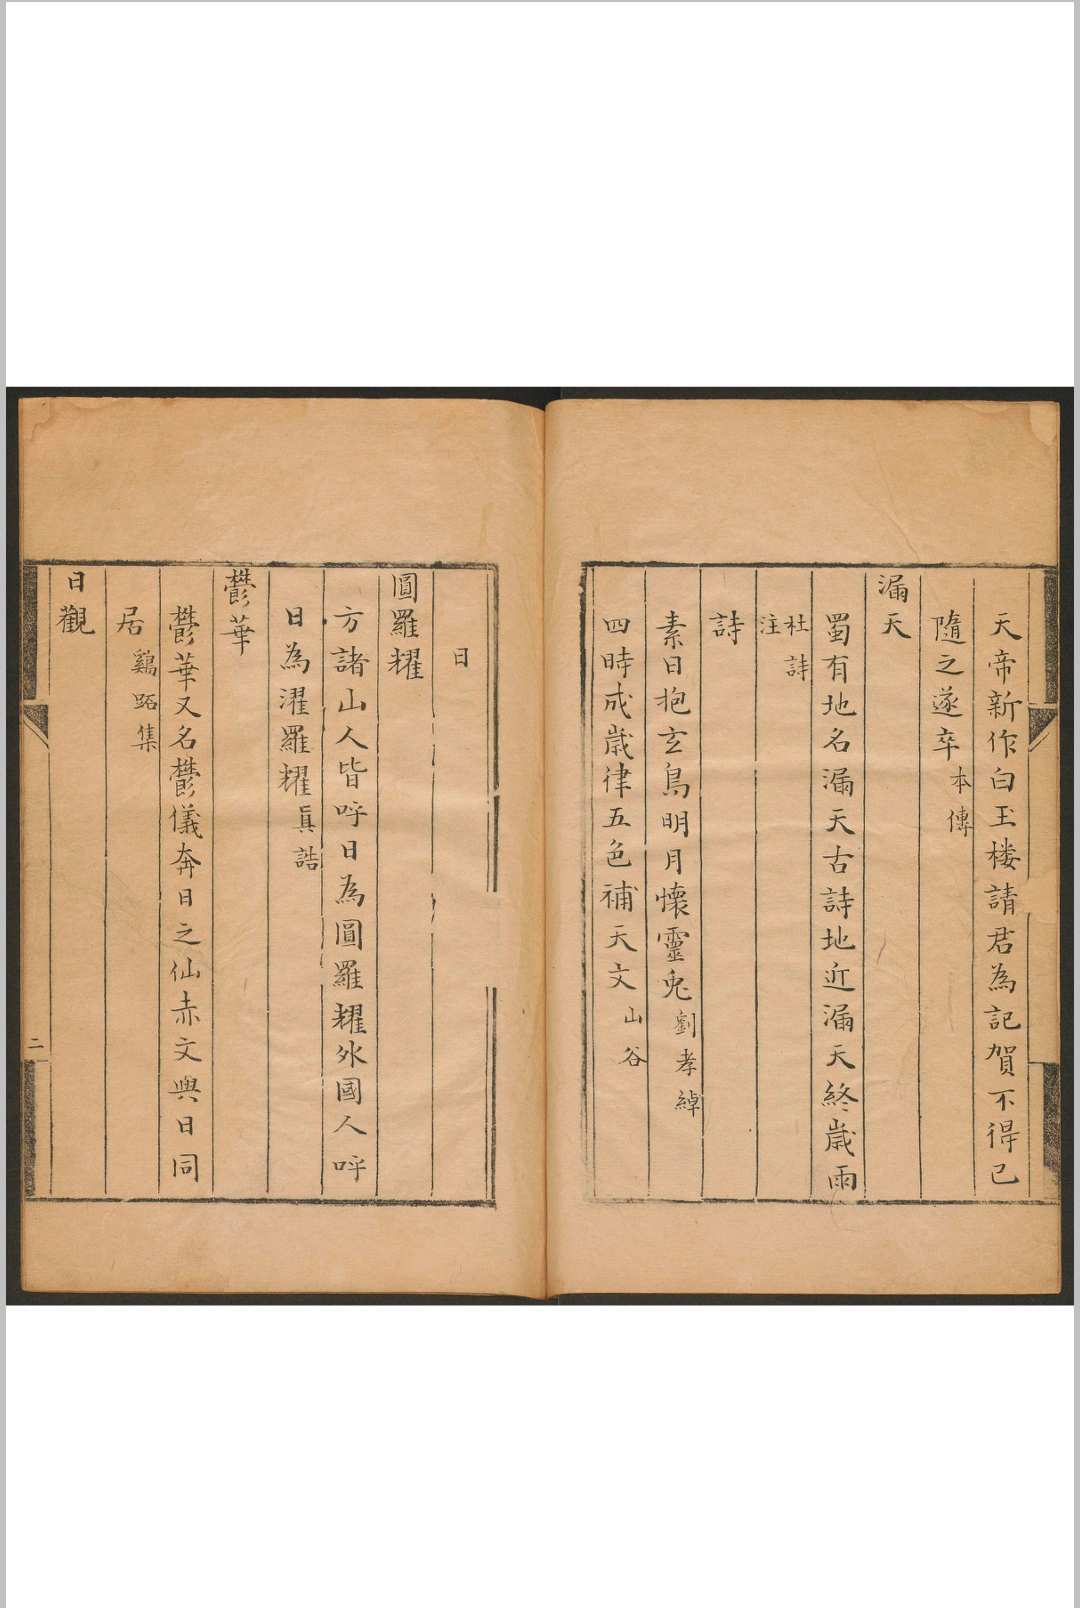 天帝新作白玉楼請君為記賀不得已
隨之遂卒本傳
漏天
蜀有地名漏天古詩地近漏天終歲雨
杜詩
注
詩
素日抱玄烏明月懷靈兎劉孝綽
四時成歲律五色補天文山谷
日
圓羅耀
方諸山人皆呼日為圓羅耀外國人呼
日為濯羅耀真誥
鬱華
鬱華又名鬱儀奔日之仙赤文與日同
居鷄跖集
日觀
二